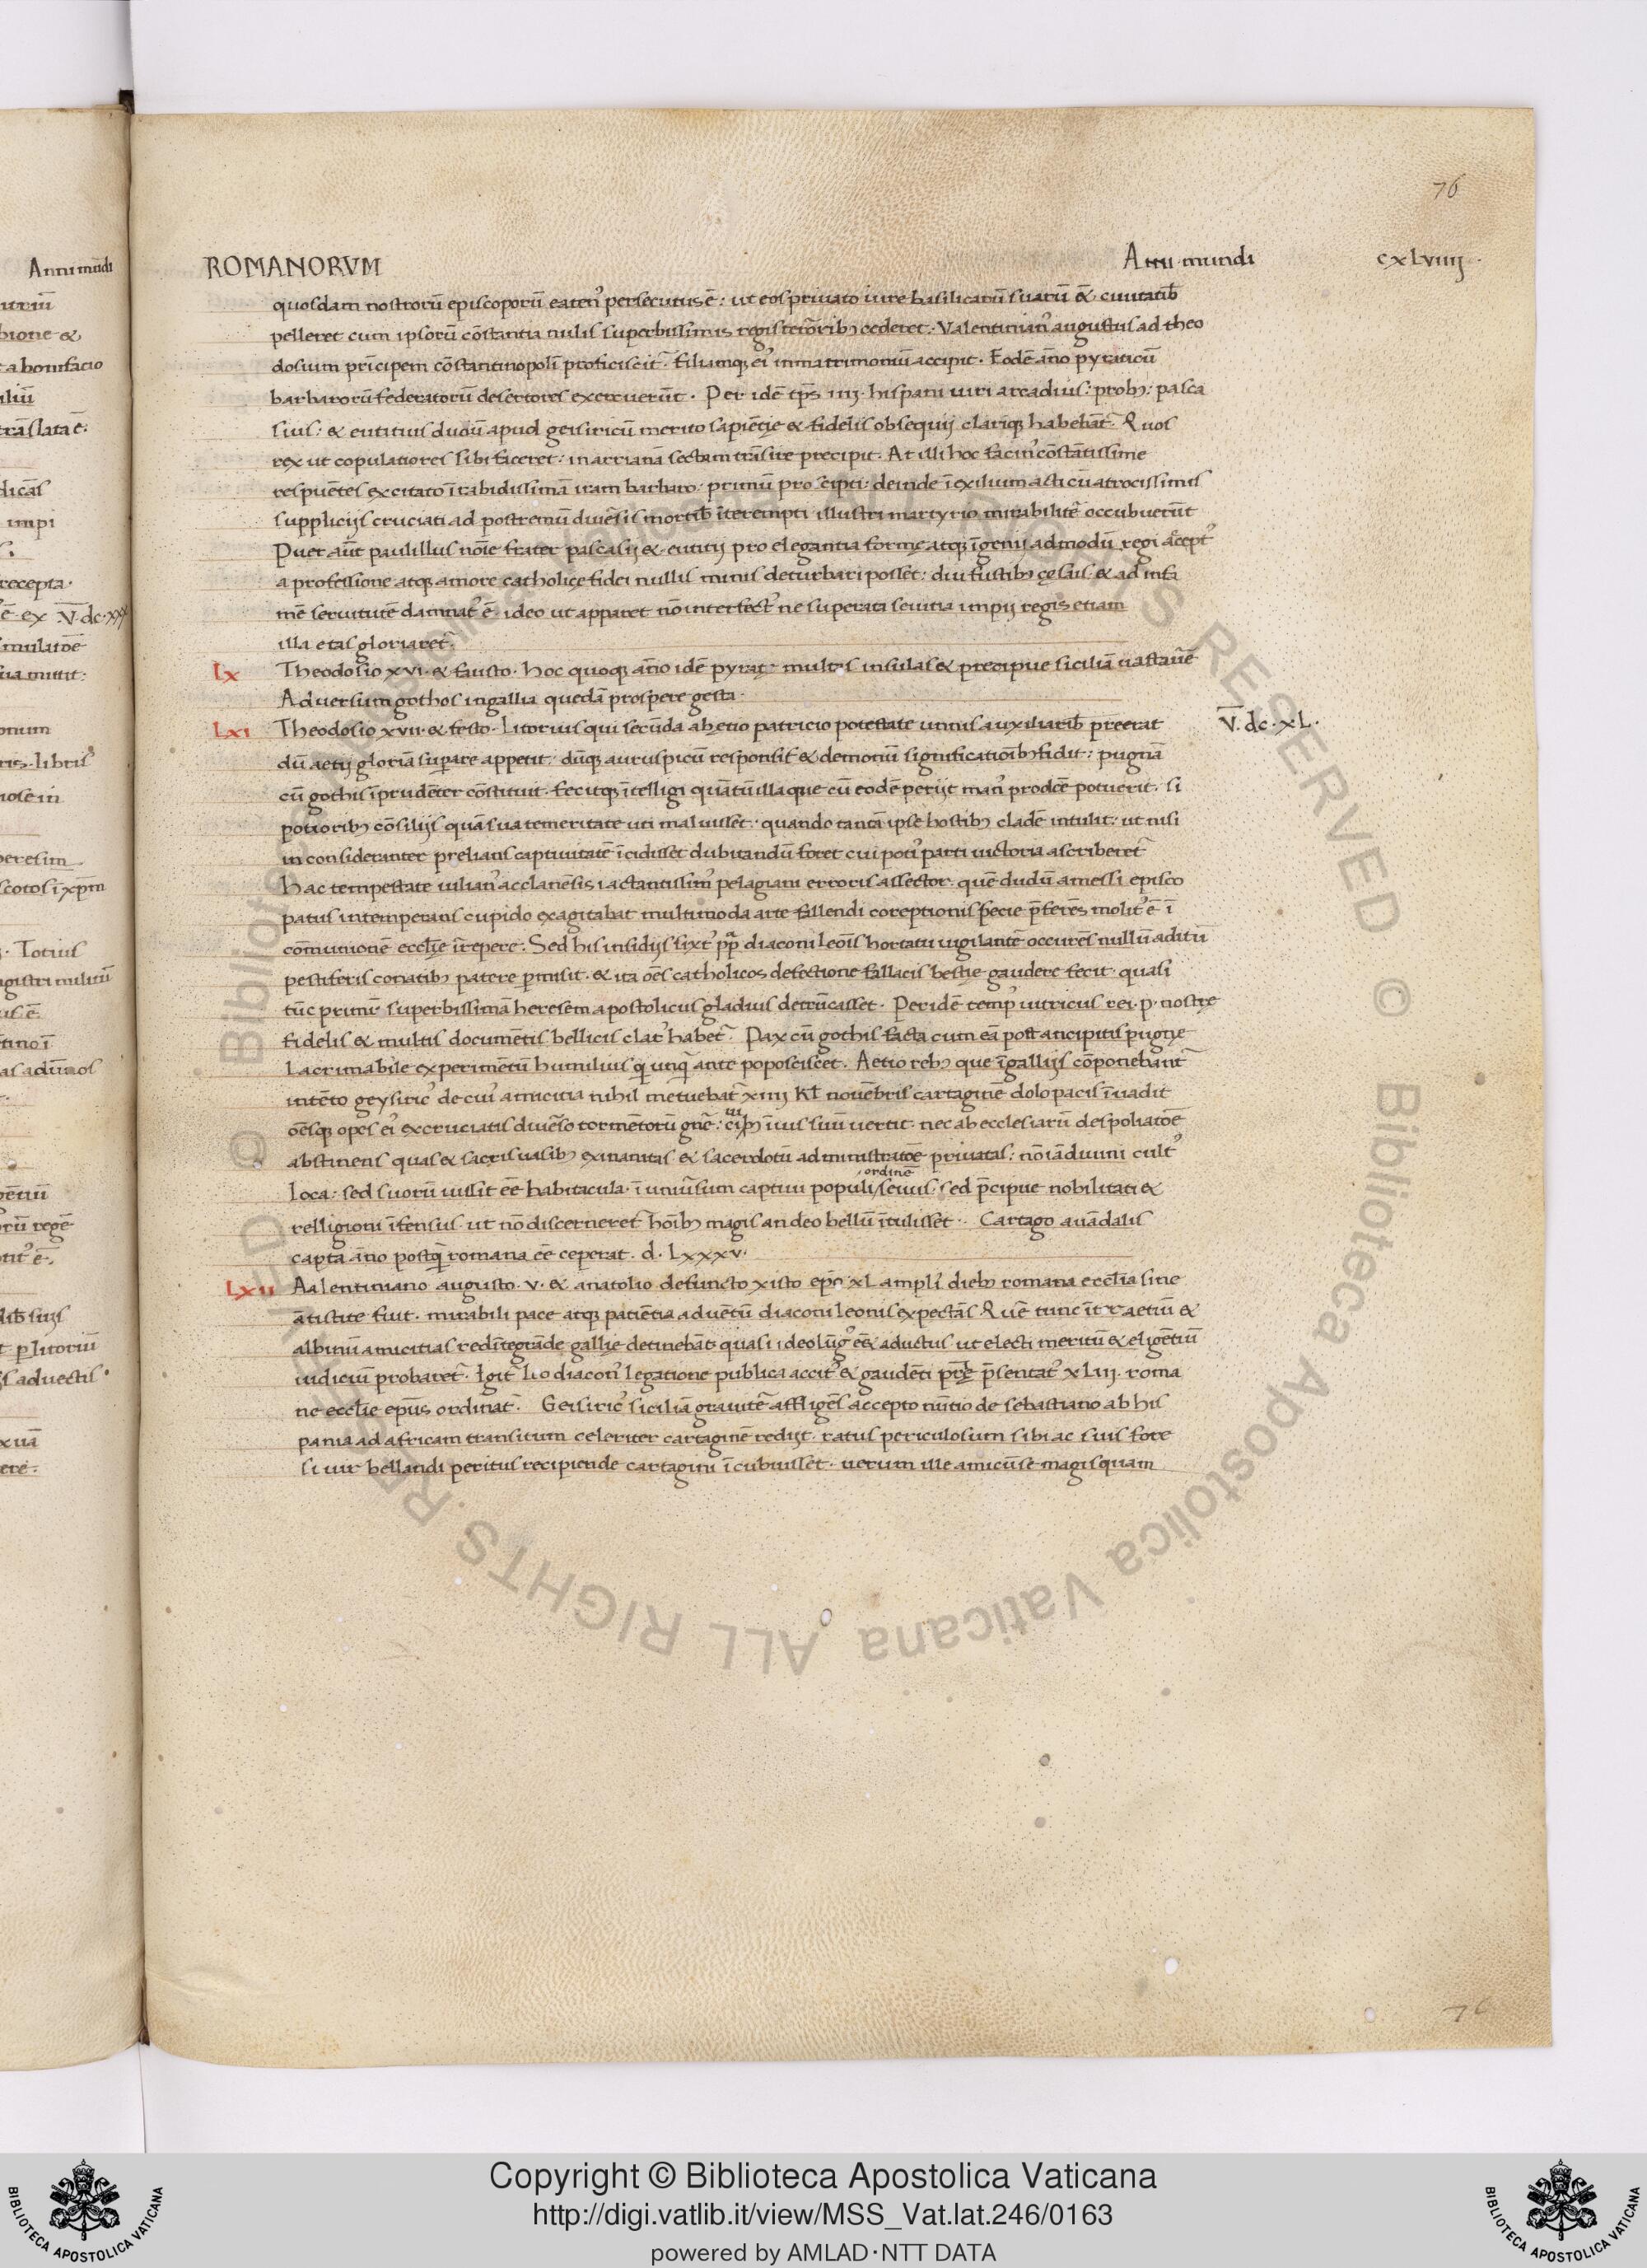 76
ROMANORVM Anni mundi cxlviiii
quosdam nostrorū episcoporū eatenꝰ persecutus ē: ut eos priuato iure basilicarū suarū & ciuitatib
pelleret cum ipsorū cōstantia nulis superbissimis regis terrorib; cederet. Valentinianꝰ augustus ad theo
dosium prīcipem cōstantinopolī proficiscit̄. filiamq; eiꝰ in matrimoniū accipit. Eodē āno pyraticū
barbarorū federatorū desertores exercuerūt. Per idē tp̄s iiij. hispani uiri arcadius: prob;: pasca
sius: & eutitius dudū apud geisiricū merito sapiētię & fidelis obsequij clariq; habebāt̄. Quos
rex ut copulatiores sibi faceret: in arrianā sectam trāsire precipit. At illi hoc facinꝰ cōstātissime
respuētes excitato ī rabidissimā iram barbaro: primū proscipti: deinde ī exilium acti cū atrocissimis
supplicijs cruciati ad postremū diuēsis mortib īterempti illustri martyrio mirabilitē occubuerūt
Puer aūt paulillus nōie frater pascasij & eutitij pro elegantia formę atq; īgenij admodū regi accept
a professione atq; amore catholicę fidei nullis minis deturbari posset: diu fustib; cęsus & ad infa
mē seruitutē damnatꝰ ē. ideo ut apparet nō interfectꝰ ne superata seuitia impij regis etiam
illa etas gloriaret̄.
Lx Theodosio xvi. & fausto. hoc quoq; āno idē pyratę multas insulas & precipue siciliā uastauē
Aduersum gothos in gallia quedā prospere gesta.
Lxi Theodosio xvii. & festo. Litorius qui secūda ab etio patricio potestate unnis auxiliarib preerat V̄. dc. xL.
dū aetij gloriā superare appetit. dūq; auruspicū responsis & demoniū significatiōib; fidit: pugnā
cū gothis īprudēter cōstituit. fecitq; ītelligi quātū illa que cū eodē perijt manꝰ prodēe potuerit. si
potiorib; cōsilijs quā sua temeritate uti maluisset: quando tantā ipse hostib; cladē intulit: ut nisi
inconsideranter prelians captiuitatē īcidisset dubitandū foret cui potiꝰ parti uictoria ascriberet̄
hac tempestate iulianꝰ acclanēsis iactantissimꝰ pelagiani erroris assector. quē dudū amessi episco
patus intemperans cupido exagitabat multimoda arte fallendi coreptionis specie p̄ferēs molitꝰ ē ī
cōmunionē eccl̄ie īrepere. Sed his insidijs sixtꝰ pp̄ diaconi leōis hortatu uigilantē occurēs nullū aditū
pestiferis conatib; patere p̄misit. & ita oēs catholicos defectione fallacis bestię gaudere fecit. quasi
tūc primū superbissimā heresem apostolicus gladius detrūcasset. Per idē tempꝰ uitricus rei. p. nostrę
fidelis & multis documētis bellicis clarꝰ habet̄. Pax cū gothis facta cum eā post ancipitis pugnę
Lacrimabile experimētū humilius q̄ unq̄ ante poposciscet. Aetio reb; que ī gallijs cōponebant̄
intēto geysiricꝰ de cuiꝰ amicitia nihil metuebat̄ xiiij kł nouēbris cartaginē dolo pacis īuadit
oēsq; opes eiꝰ excruciatis diuēso tormētorū gn̄e: ciuib; ī ius suū uertit. nec ab ecclesiarū despoliatōē
abstinens quas & sacris uasib; exinanitas & sacerdotū administratōē priuatas: nō iā diuini cultꝰ
loca: sed suorū iussit ēē habitacula. ī uniūsum captiui populi ordinē seuus: sed p̄cipue nobilitati &
relligioni īfensus. ut nō discerneret hōib; magis an deo bellū ītulisset. Cartago a uādalis
capta āno postq̄ romana ēē ceperat. d. Lxxxv.
Lxii Aalentiniano augusto. v. & anatolio defuncto xisto ep̄o xL ampliꝰ dieb; romana eccl̄ia sine
ātistite fuit. mirabili pace atq; patiētia aduētū diaconi leonis expectās. Quē tunc īter aetiū &
albinū amicitias redītegrāde gallię detinebāt quasi ideo lūgꝰ eēt aductus. ut electi meritū & eligētiū
iudiciū probaret̄. Igit̄ leo diaconꝰ legatione publica accitꝰ & gaudēti pr̄ię p̄sentatꝰ xLiij. roma
ne eccl̄ie ep̄us ordinat̄. Geisiricꝰ siciliā grauitē affligēs accepto nūtio de sebastiano ab his
pania ad africam transitum celeriter cartaginē redijt. ratus periculosum sibi ac suis fore
si uir bellandi peritus recipiende cartagini īcubuisset. uerum ille amicū se magis quam
76
Copyright © Biblioteca Apostolica Vaticana
http://digi.vatlib.it/view/MSS_Vat.lat.246/0163
powered by AMLAD·NTT DATA